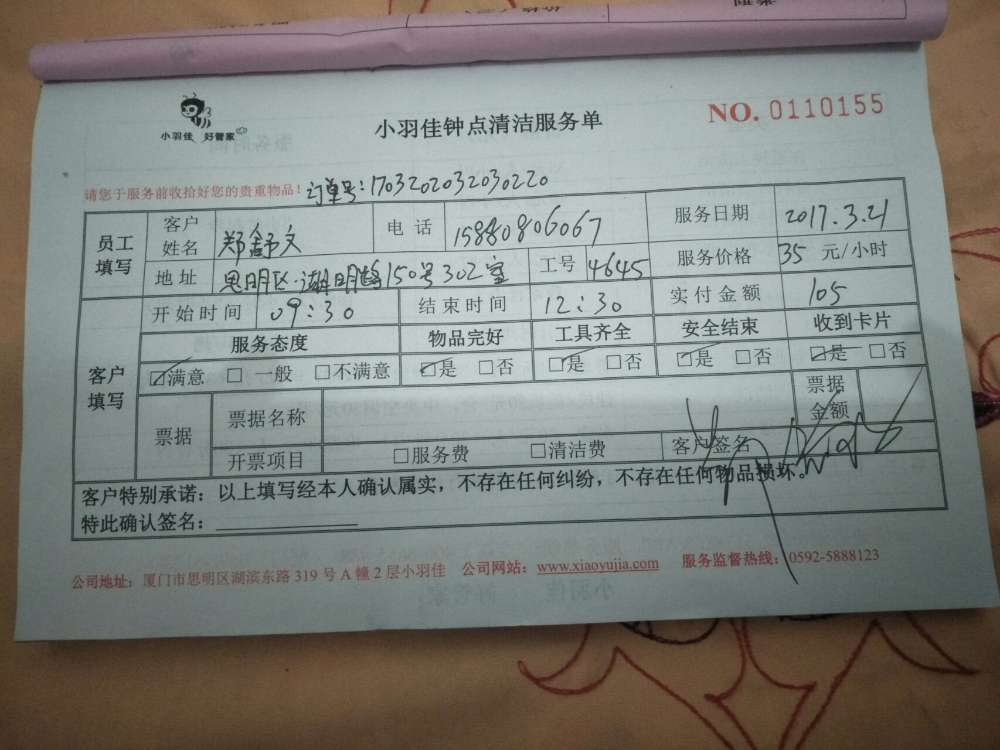 小羽佳 好管家
小羽佳钟点清洁服务单
NO. 0110155
请您于服务前收拾好您的贵重物品!
订单号:1703202032030220
员工填写
客户姓名 郑舒文 电话 15880806067 服务日期 2017.3.21
地址 思明区·湖明路150号302室 工号 4645 服务价格 35 元/小时
客户填写
开始时间 09:30 结束时间 12:30 实付金额 105
服务态度 物品完好 工具齐全 安全结束 收到卡片
☑满意 □ 一般 □不满意 ☑是 □否 ☑是 □否 ☑是 □否 ☑是 □否
票据 票据名称 票据金额
开票项目 □服务费 □清洁费 客户签名
客户特别承诺:以上填写经本人确认属实,不存在任何纠纷,不存在任何物品损坏。
特此确认签名:
公司地址:厦门市思明区湖滨东路 319 号 A 幢 2 层小羽佳 公司网站:www.xiaoyujia.com 服务监督热线:0592-5888123